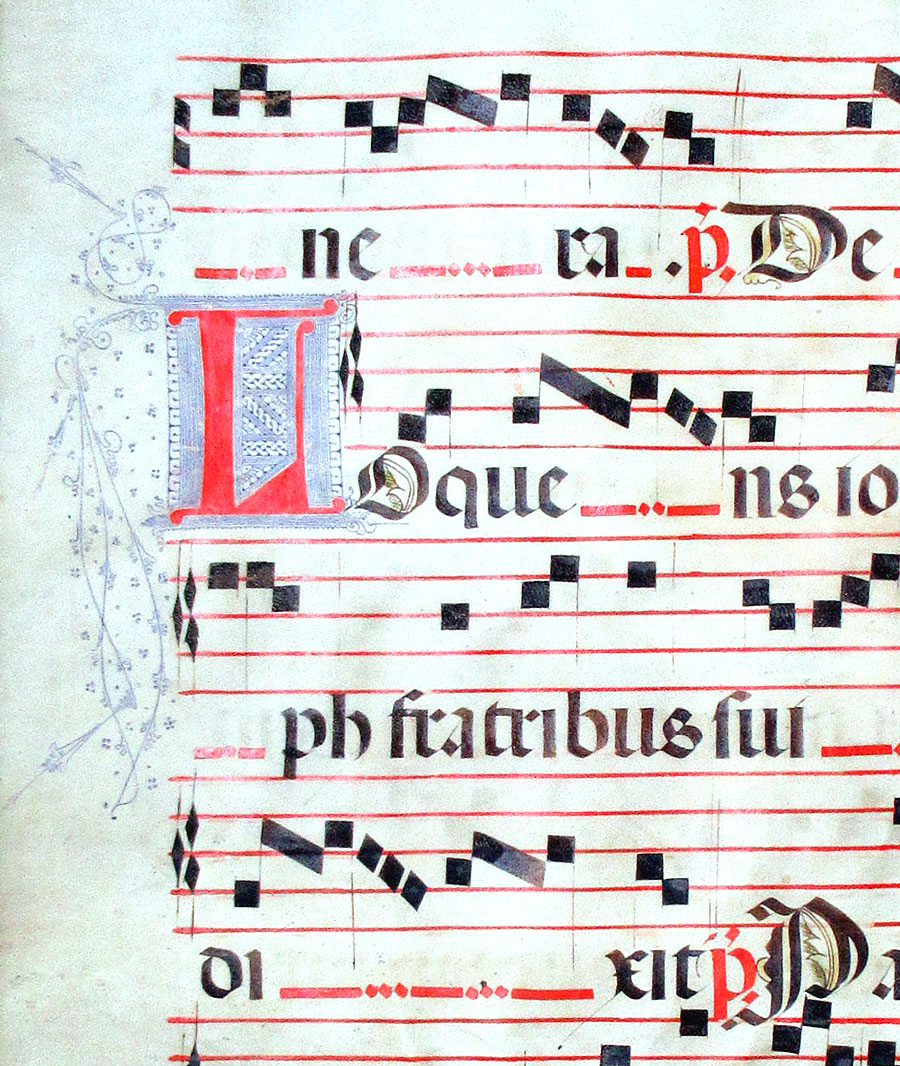 ne ra. p. De
LOque ns io
ph fratribus sui
di xit p Pa